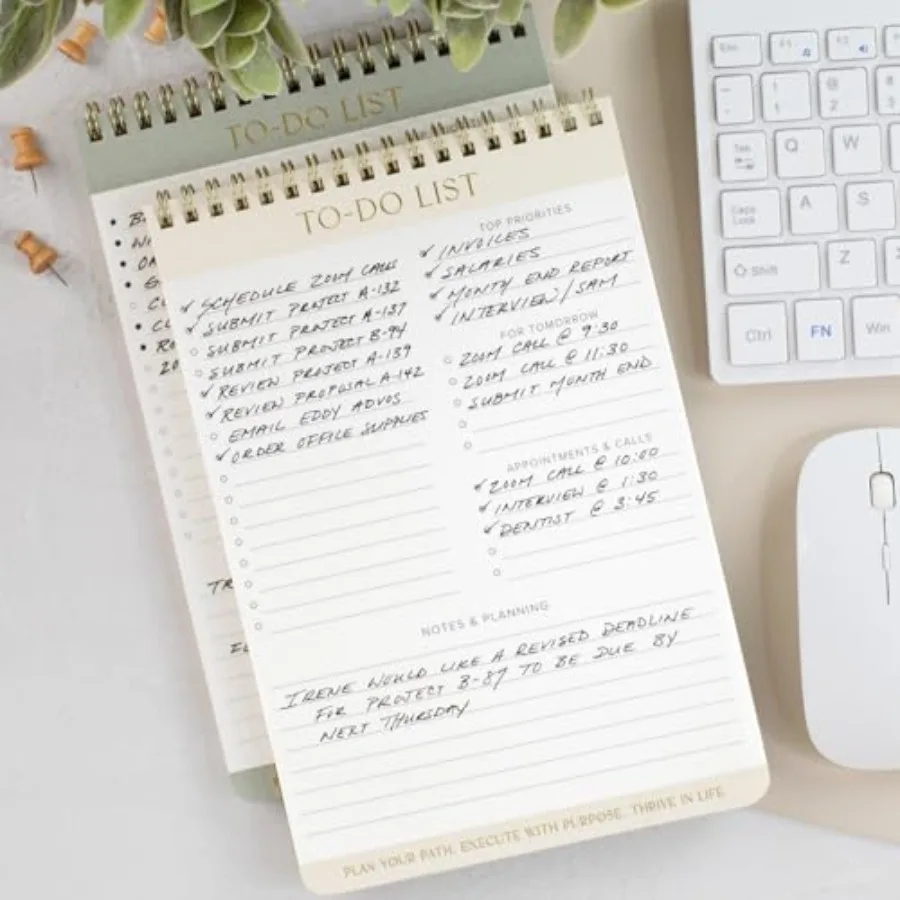 TO-DO LIST
TO-DO LIST
TOP PRIORITIES
✓ INVOICES
✓ SALARIES
✓ MONTH END REPORT
✓ INTERVIEW/SAM
✓ SCHEDULE ZOOM CALLS
✓ SUBMIT PROJECT A-132
○ SUBMIT PROJECT A-137
○ SUBMIT PROJECT B-94
✓ REVIEW PROJECT A-139
✓ REVIEW PROPOSAL A-142
○ EMAIL EDDY ADVOS
✓ ORDER OFFICE SUPPLIES
FOR TOMORROW
○ ZOOM CALL @ 9:30
○ ZOOM CALL @ 11:30
○ SUBMIT MONTH END
APPOINTMENTS & CALLS
✓ ZOOM CALL @ 10:00
✓ INTERVIEW @ 1:30
✓ DENTIST @ 3:45
NOTES & PLANNING
IRENE WOULD LIKE A REVISED DEADLINE
FOR PROJECT B-87 TO BE DUE BY
NEXT THURSDAY
PLAN YOUR PATH. EXECUTE WITH PURPOSE. THRIVE IN LIFE
Esc F1 F2
~ ! 1 @ 2 # 3
Tab Q W
Caps Lock A S
Shift Z
Ctrl FN Win